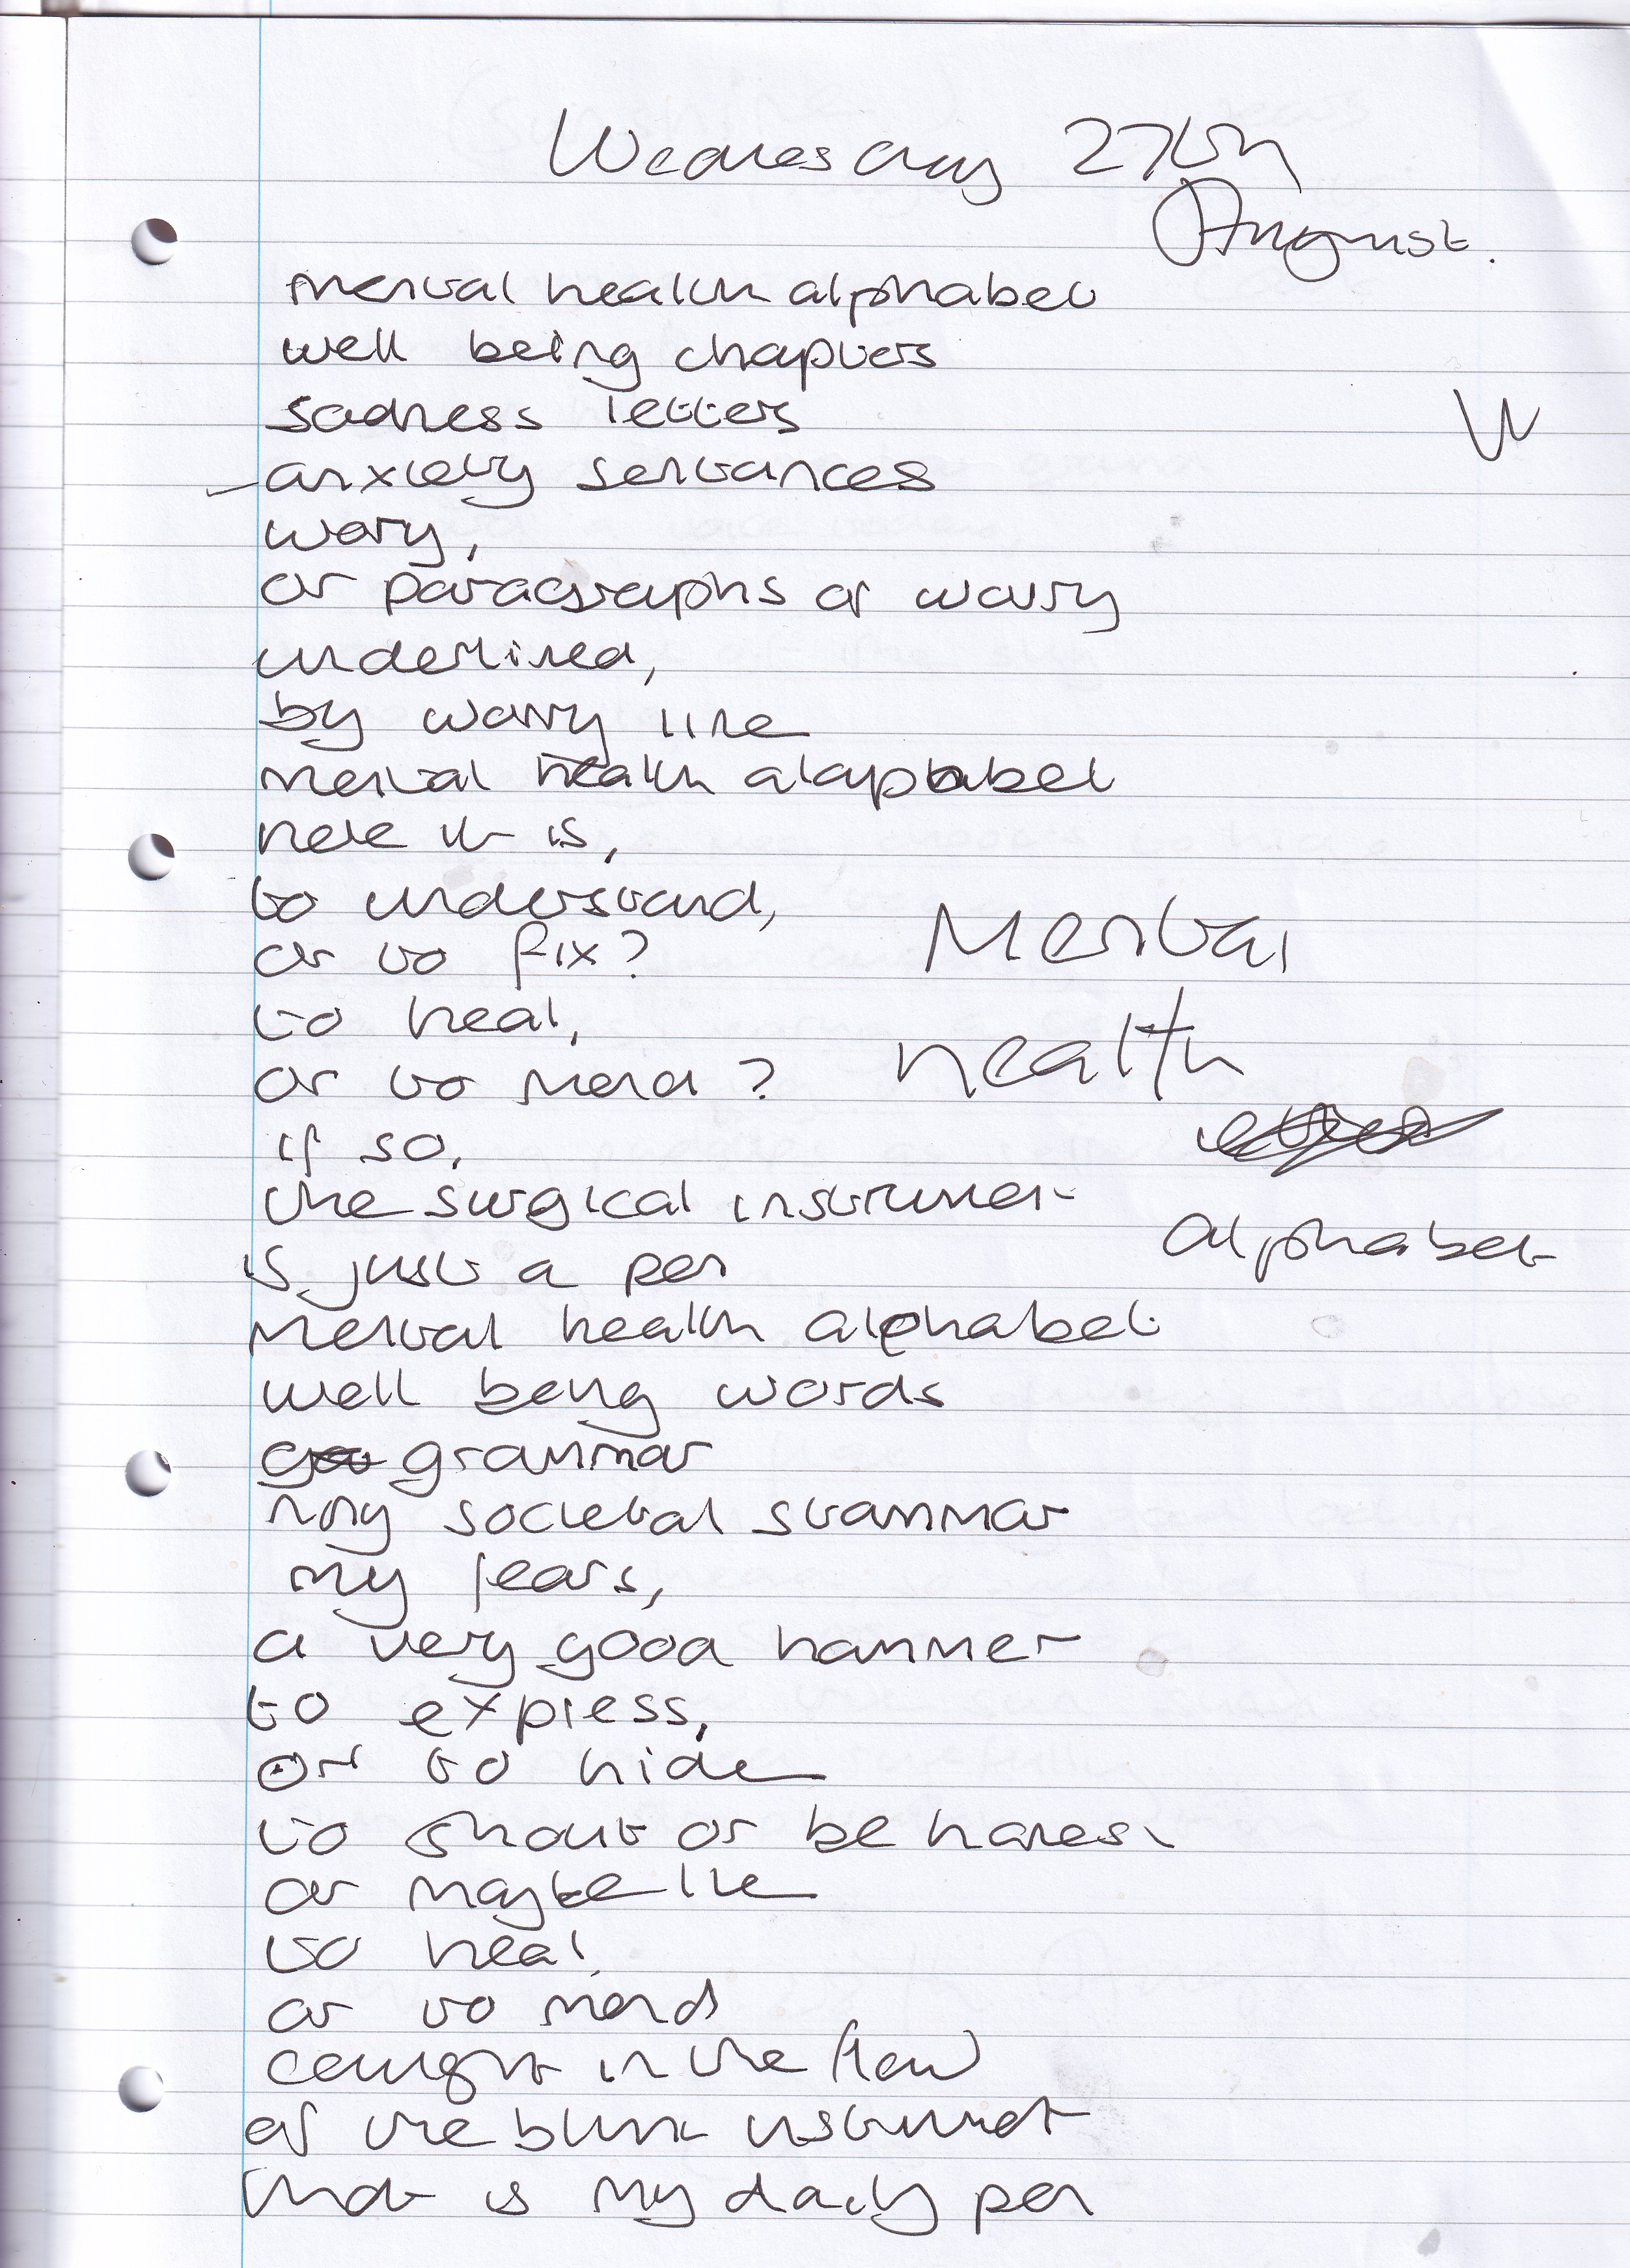 Wednesday 27th
August.
mental health alphabet
well being chapters
sadness letters
W
anxiety sentances
wory,
or paragraphs of worry
underlined,
by wavy line
mental health alapbabet
here it is,
to understand,
or to fix?
to heal,
or to mend?
if so,
the surgical instrument
is just a pen
Mental
health
alphabet
mental health alphabet
well being words
grammar
my societal stammar
my fears,
a very good hammer
to express,
or to hide
to shout or be honest
or maybe lie
to heal,
or to mend
caught in the flow
of the blunt instrument
that is my daily pen